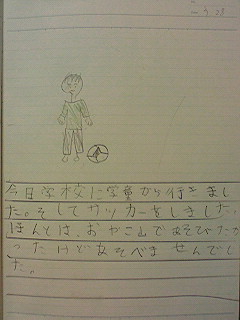 今日学校に学童から行きまし
た。そしてサッカーをしました。
ほんとは、おやこ山であそびたか
ったけどあそべませんでし
た。